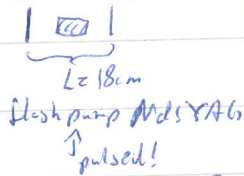 L = 18cm
flash pump Nd:YAG
pulsed!